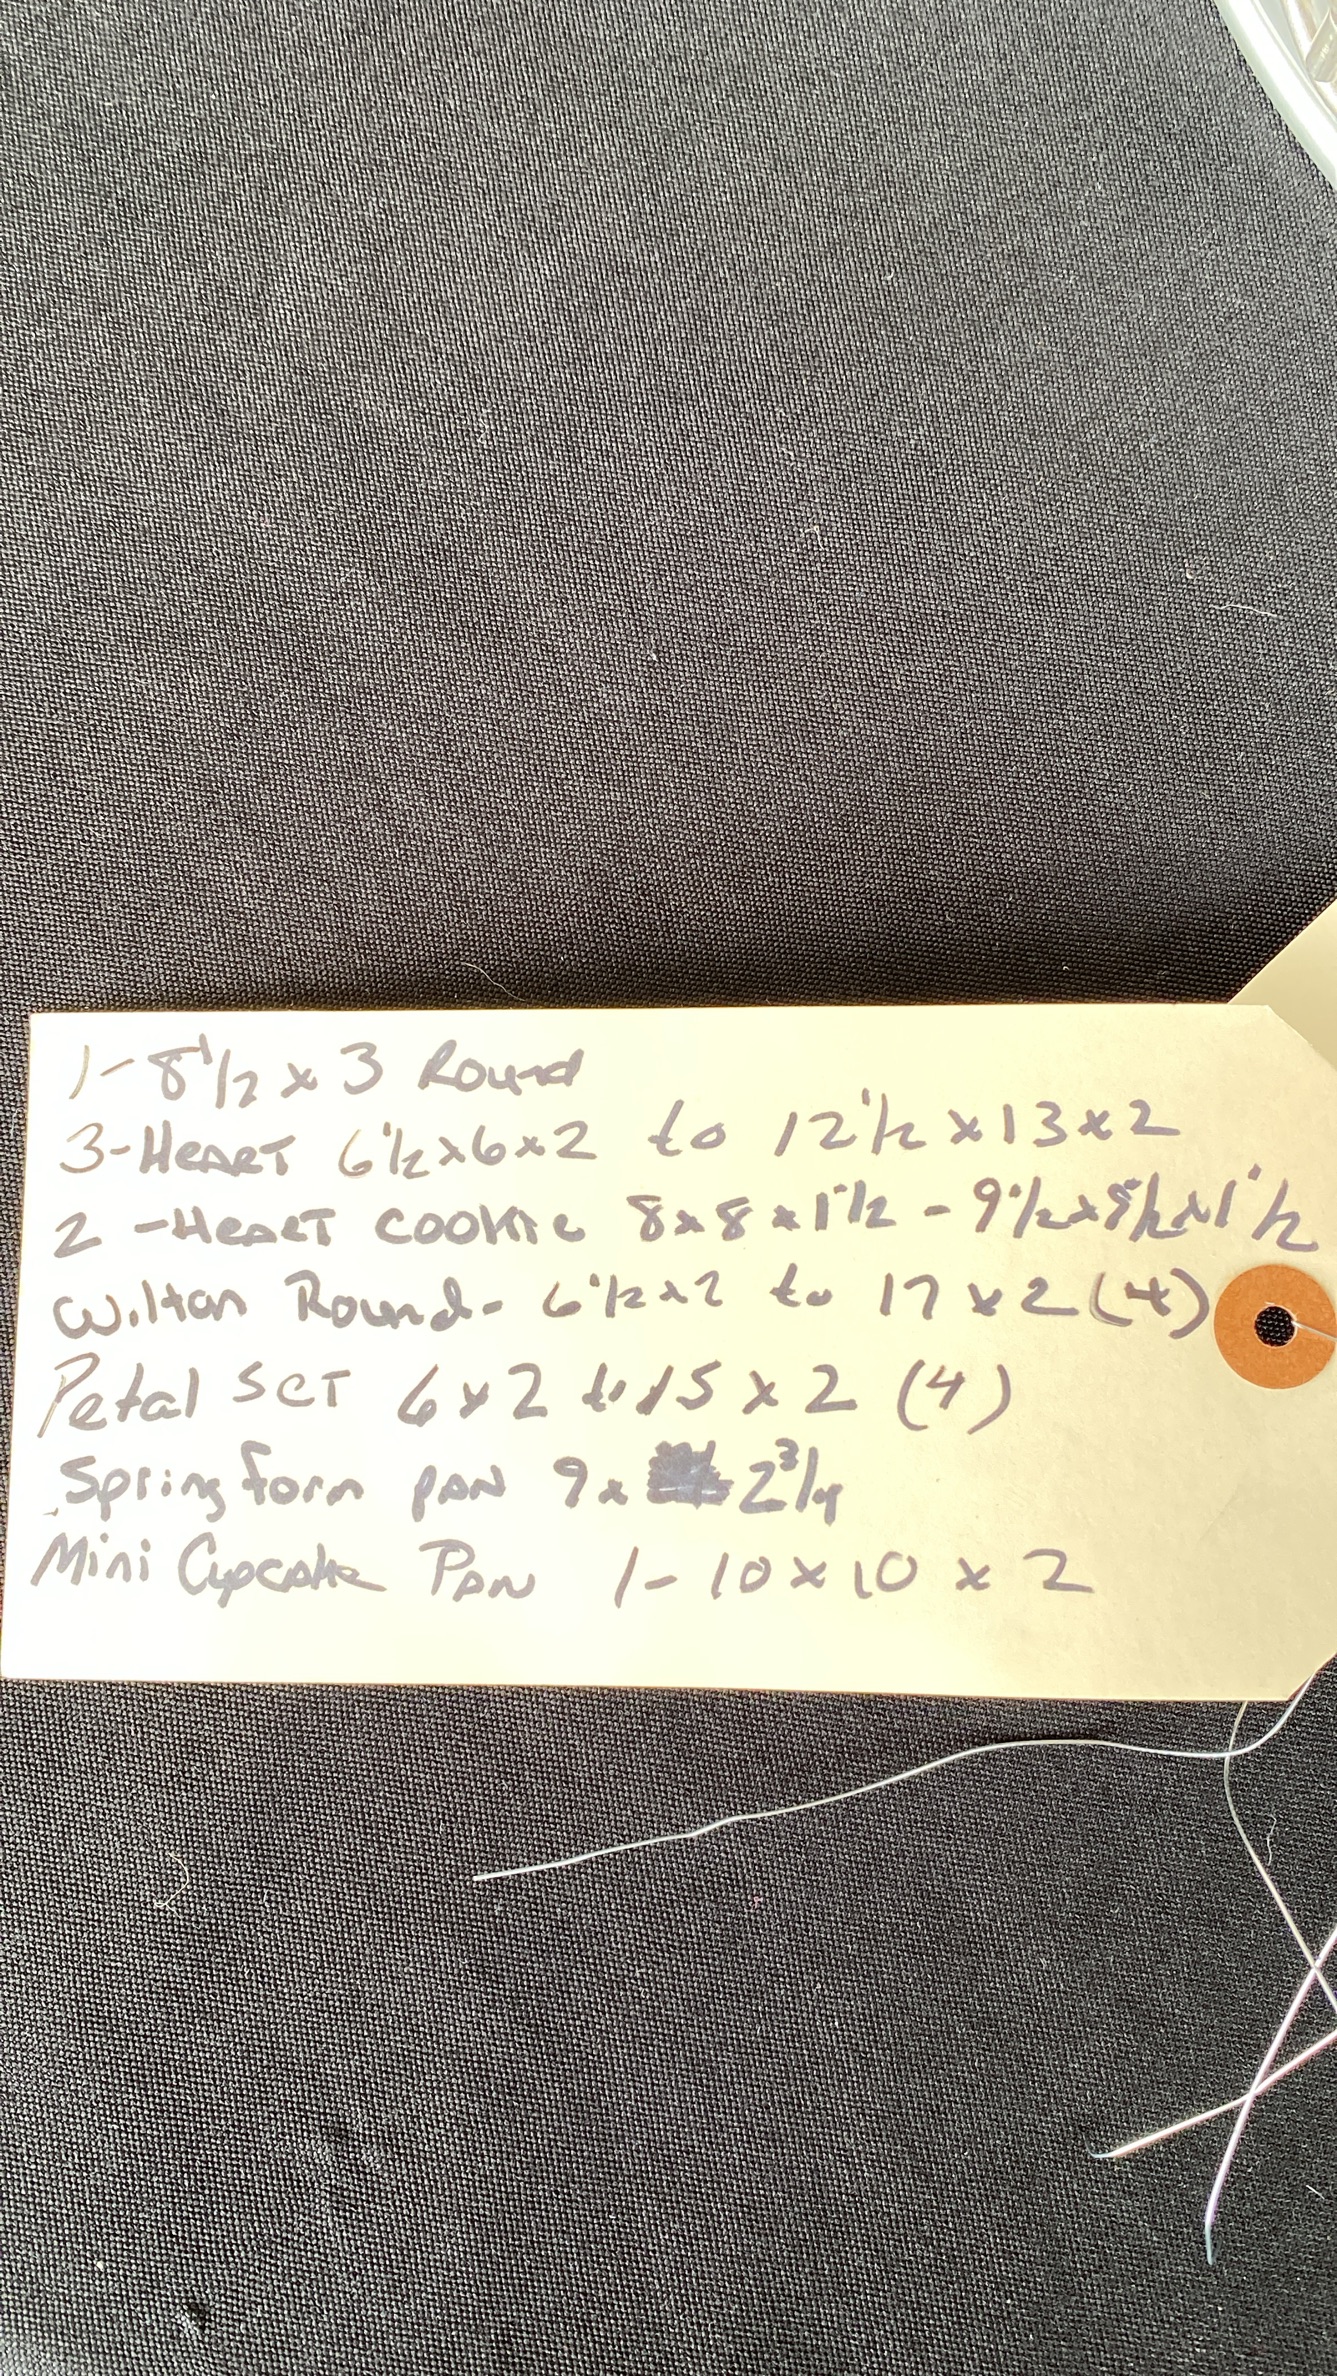 1- 8 1/2 x 3 Round
3-Heart 6 1/2 x 6 x 2 to 12 1/2 x 13 x 2
2 -Heart cookie 8 x 8 x 1 1/2 - 9 1/2 x 9 1/2 x 1 1/2
Wilton Round- 6 1/2 x 2 to 17 x 2 (4)
Petal SeT 6 x 2 to 15 x 2 (4)
Spring form pan 9 x 2 3/4
Mini Cupcake Pan 1- 10 x 10 x 2